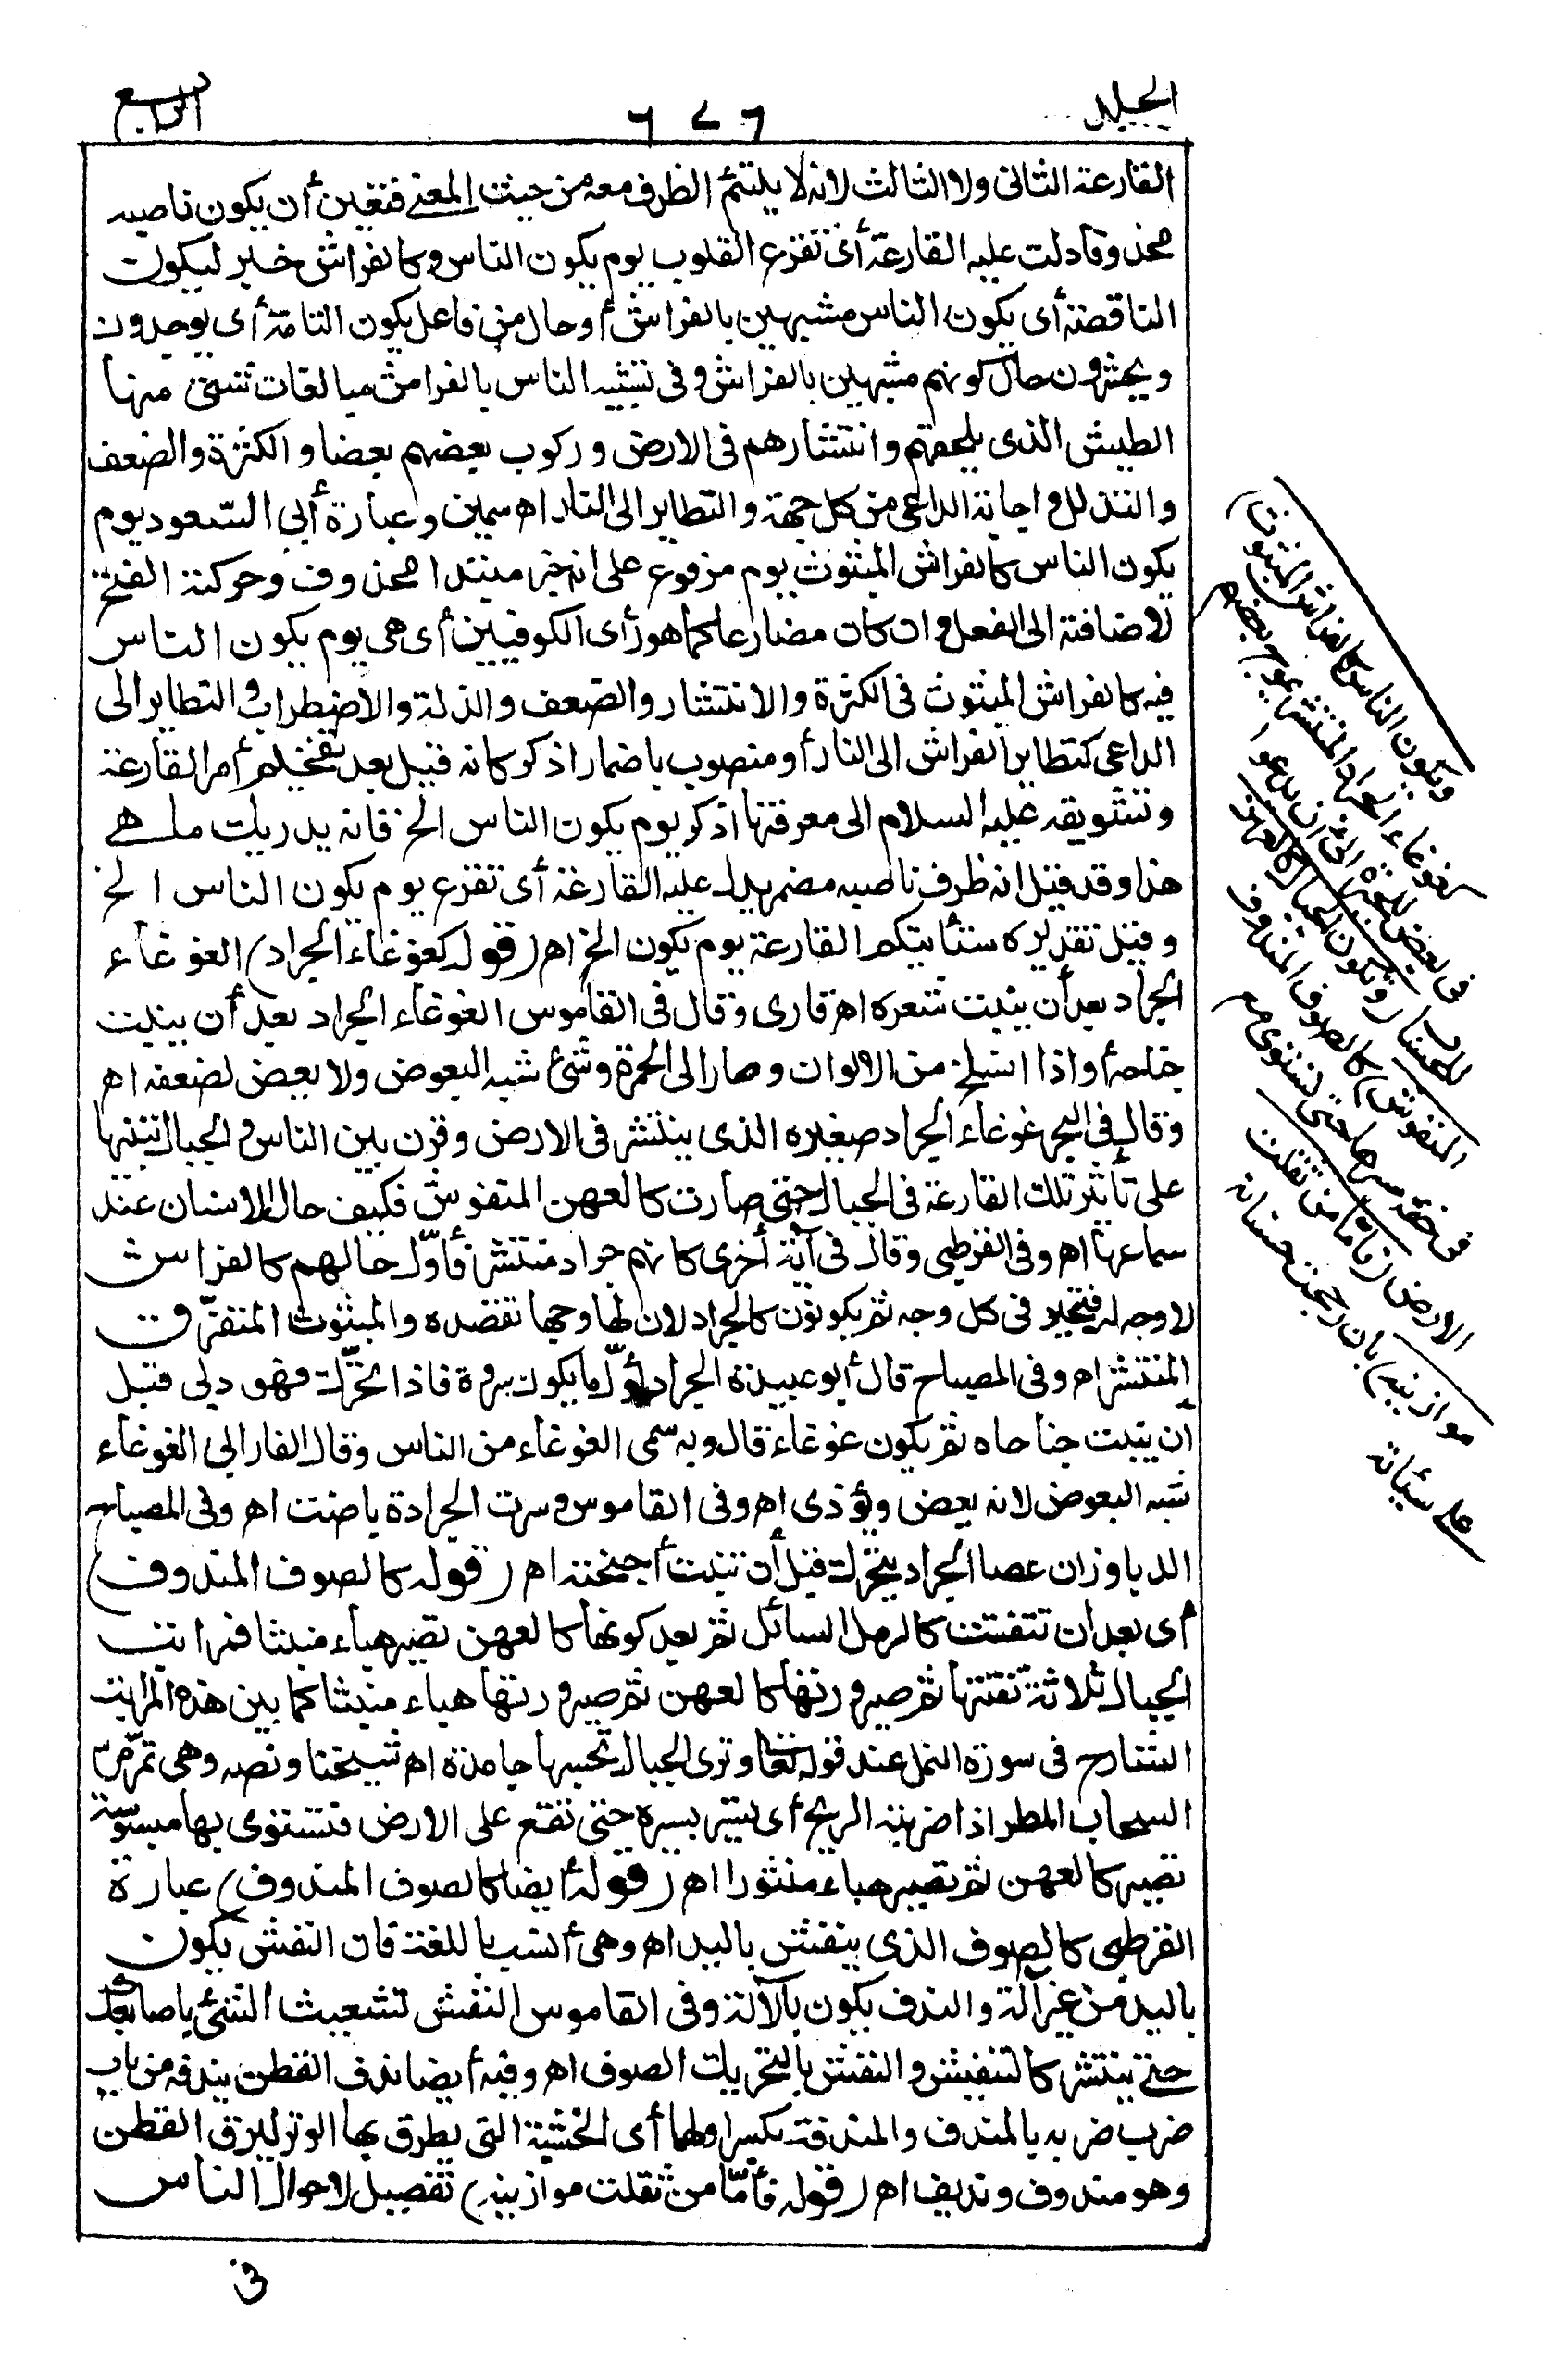 الجلد
٦٧٦
الرابع
القارعة الثانى ولا الثالث لانه لا يلتئم الظرف معه من حيث المعنى فتعين أن يكون ناصبه
محذوفا دلت عليه القارعة أى تقرع القلوب يوم يكون الناس وكالفراش خبر ليكون
الناقصة أى يكون الناس مشبهين بالفراش أو حال من فاعل يكون التامة أى يوجدون
ويحشرون حال كونهم مشبهين بالفراش وفى تشبيه الناس بالفراش مبالغات شتى منها
الطيش الذى يلحقهم وانتشارهم فى الارض وركوب بعضهم بعضا والكثرة والضعف
والتذلل واجابة الداعى من كل جهة والتطاير الى النار اه سمين وعبارة أبى السعود يوم
يكون الناس كالفراش المبثوث يوم مرفوع على انه خبر مبتدا محذوف وحركته الفتح
لاضافته الى الفعل وان كان مضارعا كما هو رأى الكوفيين أى هى يوم يكون الناس
فيه كالفراش المبثوث فى الكثرة والانتشار والضعف والذلة والاضطراب والتطاير الى
الداعى كتطاير الفراش الى النار أو منصوب باضمار اذكر كانه قيل بعد تفخيم أمر القارعة
وتشويقه عليه السلام الى معرفتها اذكر يوم يكون الناس الخ فانه يدريك ما هى
هذا وقد قيل انه ظرف ناصبه مضمر يدل عليه القارعة أى تقرع يوم يكون الناس الخ
وقيل تقديره ستأتيكم القارعة يوم يكون الخ اه (قوله كغوغاء الجراد) الغوغاء
الجراد بعد أن ينبت شعره اه قارى وقال فى القاموس الغوغاء الجراد بعد أن ينبت
جناحه أو اذا انسلخ من الالوان وصار الى الحمرة وشئ شبه البعوض ولا يعض لضعفه اه
وقال فى البحر غوغاء الجراد صغيره الذى ينتشر فى الارض وقرن بين الناس والجبال تنبيها
على تأثير تلك القارعة فى الجبال حتى صارت كالعهن المنفوش فكيف حال الانسان عند
سماعها اه وفى القرطبى وقال فى آية أخرى كانهم جراد منتشر فأوّل حالهم كالفراش
لا وجه له فتحير فى كل وجه ثم يكونون كالجراد لان لها وجها تقصده والمبثوث المتفرّق
المنتشر اه وفى المصباح قال أبو عبيدة الجراد أوّل ما يكون سروة فاذا تحرّك فهو دبى قبل
أن ينبت جناحاه ثم يكون غوغاء قال وبه سمى الغوغاء من الناس وقال الفارابى الغوغاء
شبه البعوض لانه يعض ويؤذى اه وفى القاموس وسرت الجرادة باضت اه وفى المصباح
الدبا وزان عصا الجراد يتحرك قبل أن تنبت أجنحته اه (قوله كالصوف المندوف)
أى بعد ان تتفتت كالرمل السائل ثم بعد كونها كالعهن تصير هباء منبثا فمراتب
الجبال ثلاثة تفتتها ثم صيرورتها كالعهن ثم صيرورتها هباء منبثا كما بين هذه المراتب
الشارح فى سورة النمل عند قوله تعا وترى الجبال تحسبها جامدة اه شيخنا ونصه وهى تمرّ مرّ
السحاب المطر اذا ضربته الريح أى تسير بسيره حتى تقع على الارض فتستوى بها مبسوسة
تصير كالعهن ثم تصير هباء منثورا اه (قوله أيضا كالصوف المندوف) عبارة
القرطبى كالصوف الذى ينفش باليد اه وهى أنسب باللغة فان النفش يكون
باليد من غير آلة والندف يكون بالآلة وفى القاموس النفش تشعيث الشئ باصابعك
حتى ينتشر كالتنفيش والنفش بالتحريك الصوف اه وفيه أيضا ندف القطن يندفه من باب
ضرب ضربه بالمندف والمندفة بكسر أولهما أى الخشبة التى يطرق بها الوتر ليرق القطن
وهو مندوف ونديف اه (قوله فأمّا من ثقلت موازينه) تفصيل لاحوال الناس
فى
ويكون الناس كالفراش المبثوث)
كغوغاء الجراد المنتشر يموج بعضهم
فى بعض للحيرة الى ان يدعوا
للحساب (وتكون الجبال كالعهن
المنفوش) كالصوف المندوف
فى خفة سيرها حتى تستوى مع
الارض (فاما من ثقلت
موازينه) بان رجحت حسناته
على سيئاته